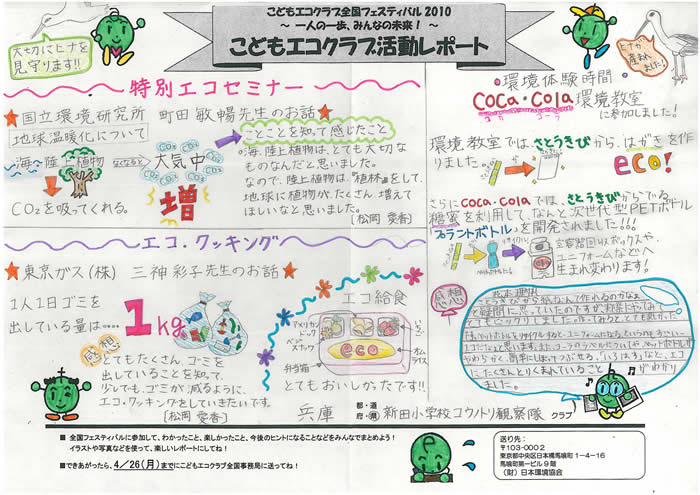 こどもエコクラブ全国フェスティバル2010
～ 一人の一歩、みんなの未来！ ～
こどもエコクラブ活動レポート
大切にヒナを
見守ります!!
ヒナが
産まれ
ました!
特別エコセミナー
★国立環境研究所 町田 敏暢先生のお話★
地球温暖化について
海、陸上植物
なくなると
CO₂を吸ってくれる。
大気中
CO₂
増
このことを知って感じたこと
◎海、陸上植物は、とても大切な
ものなんだと思いました。
なので、陸上植物は、『植林』をして、
地球に植物が、たくさん、増えて
ほしいなと思いました。
[松岡 愛香]
エコ・クッキング
★東京ガス(株) 三神 彩子先生のお話★
1人1日ゴミを
出している量は・・・・
1kg
感想
とてもたくさん、ゴミを
出していることを知って、
少しでも、ゴミが減るように、
エコ・クッキングをしていきたいです。
[松岡 愛香]
エコ給食
アメリカンドッグ
ベジスナック
弁当箱
オムライス
eco
とてもおいしかったです!!
・環境体験時間・
Coca・Cola環境教室
コカ コーラ
に参加しました!
環境教室では、さとうきびから、はがきを作
りました
eco!
さらにcoca・colaでは、さとうきびからでる
糖蜜を利用して、なんと次世代型PETボトル
「プラントボトル」を開発されました!!!
ユニフォームなどへ
生まれ変わります!
感想
エコにたくさんとりくまれていることがわかり
ました。
兵庫
都・道
府・県
新田小学校コウノトリ観察隊 クラブ
■ 全国フェスティバルに参加して、わかったこと、楽しかったこと、今後のヒントになることなどをみんなでまとめよう！
イラストや写真などを使って、楽しいレポートにしてね！
■できあがったら、4／26(月)までにこどもエコクラブ全国事務局に送ってね！
送り先：
〒103-0002
東京都中央区日本橋馬喰町1-4-16
馬喰町第一ビル9階
(財)日本環境協会